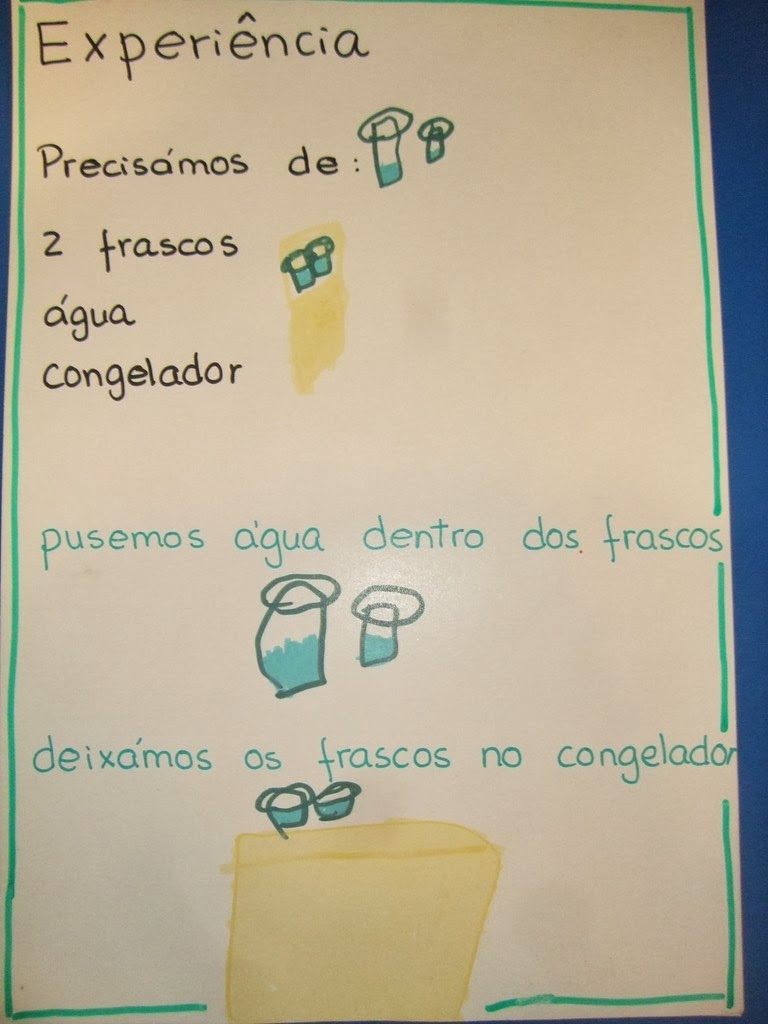 Experiência
Precisámos de:
2 frascos
água
congelador
pusemos água dentro dos frascos
deixámos os frascos no congelador